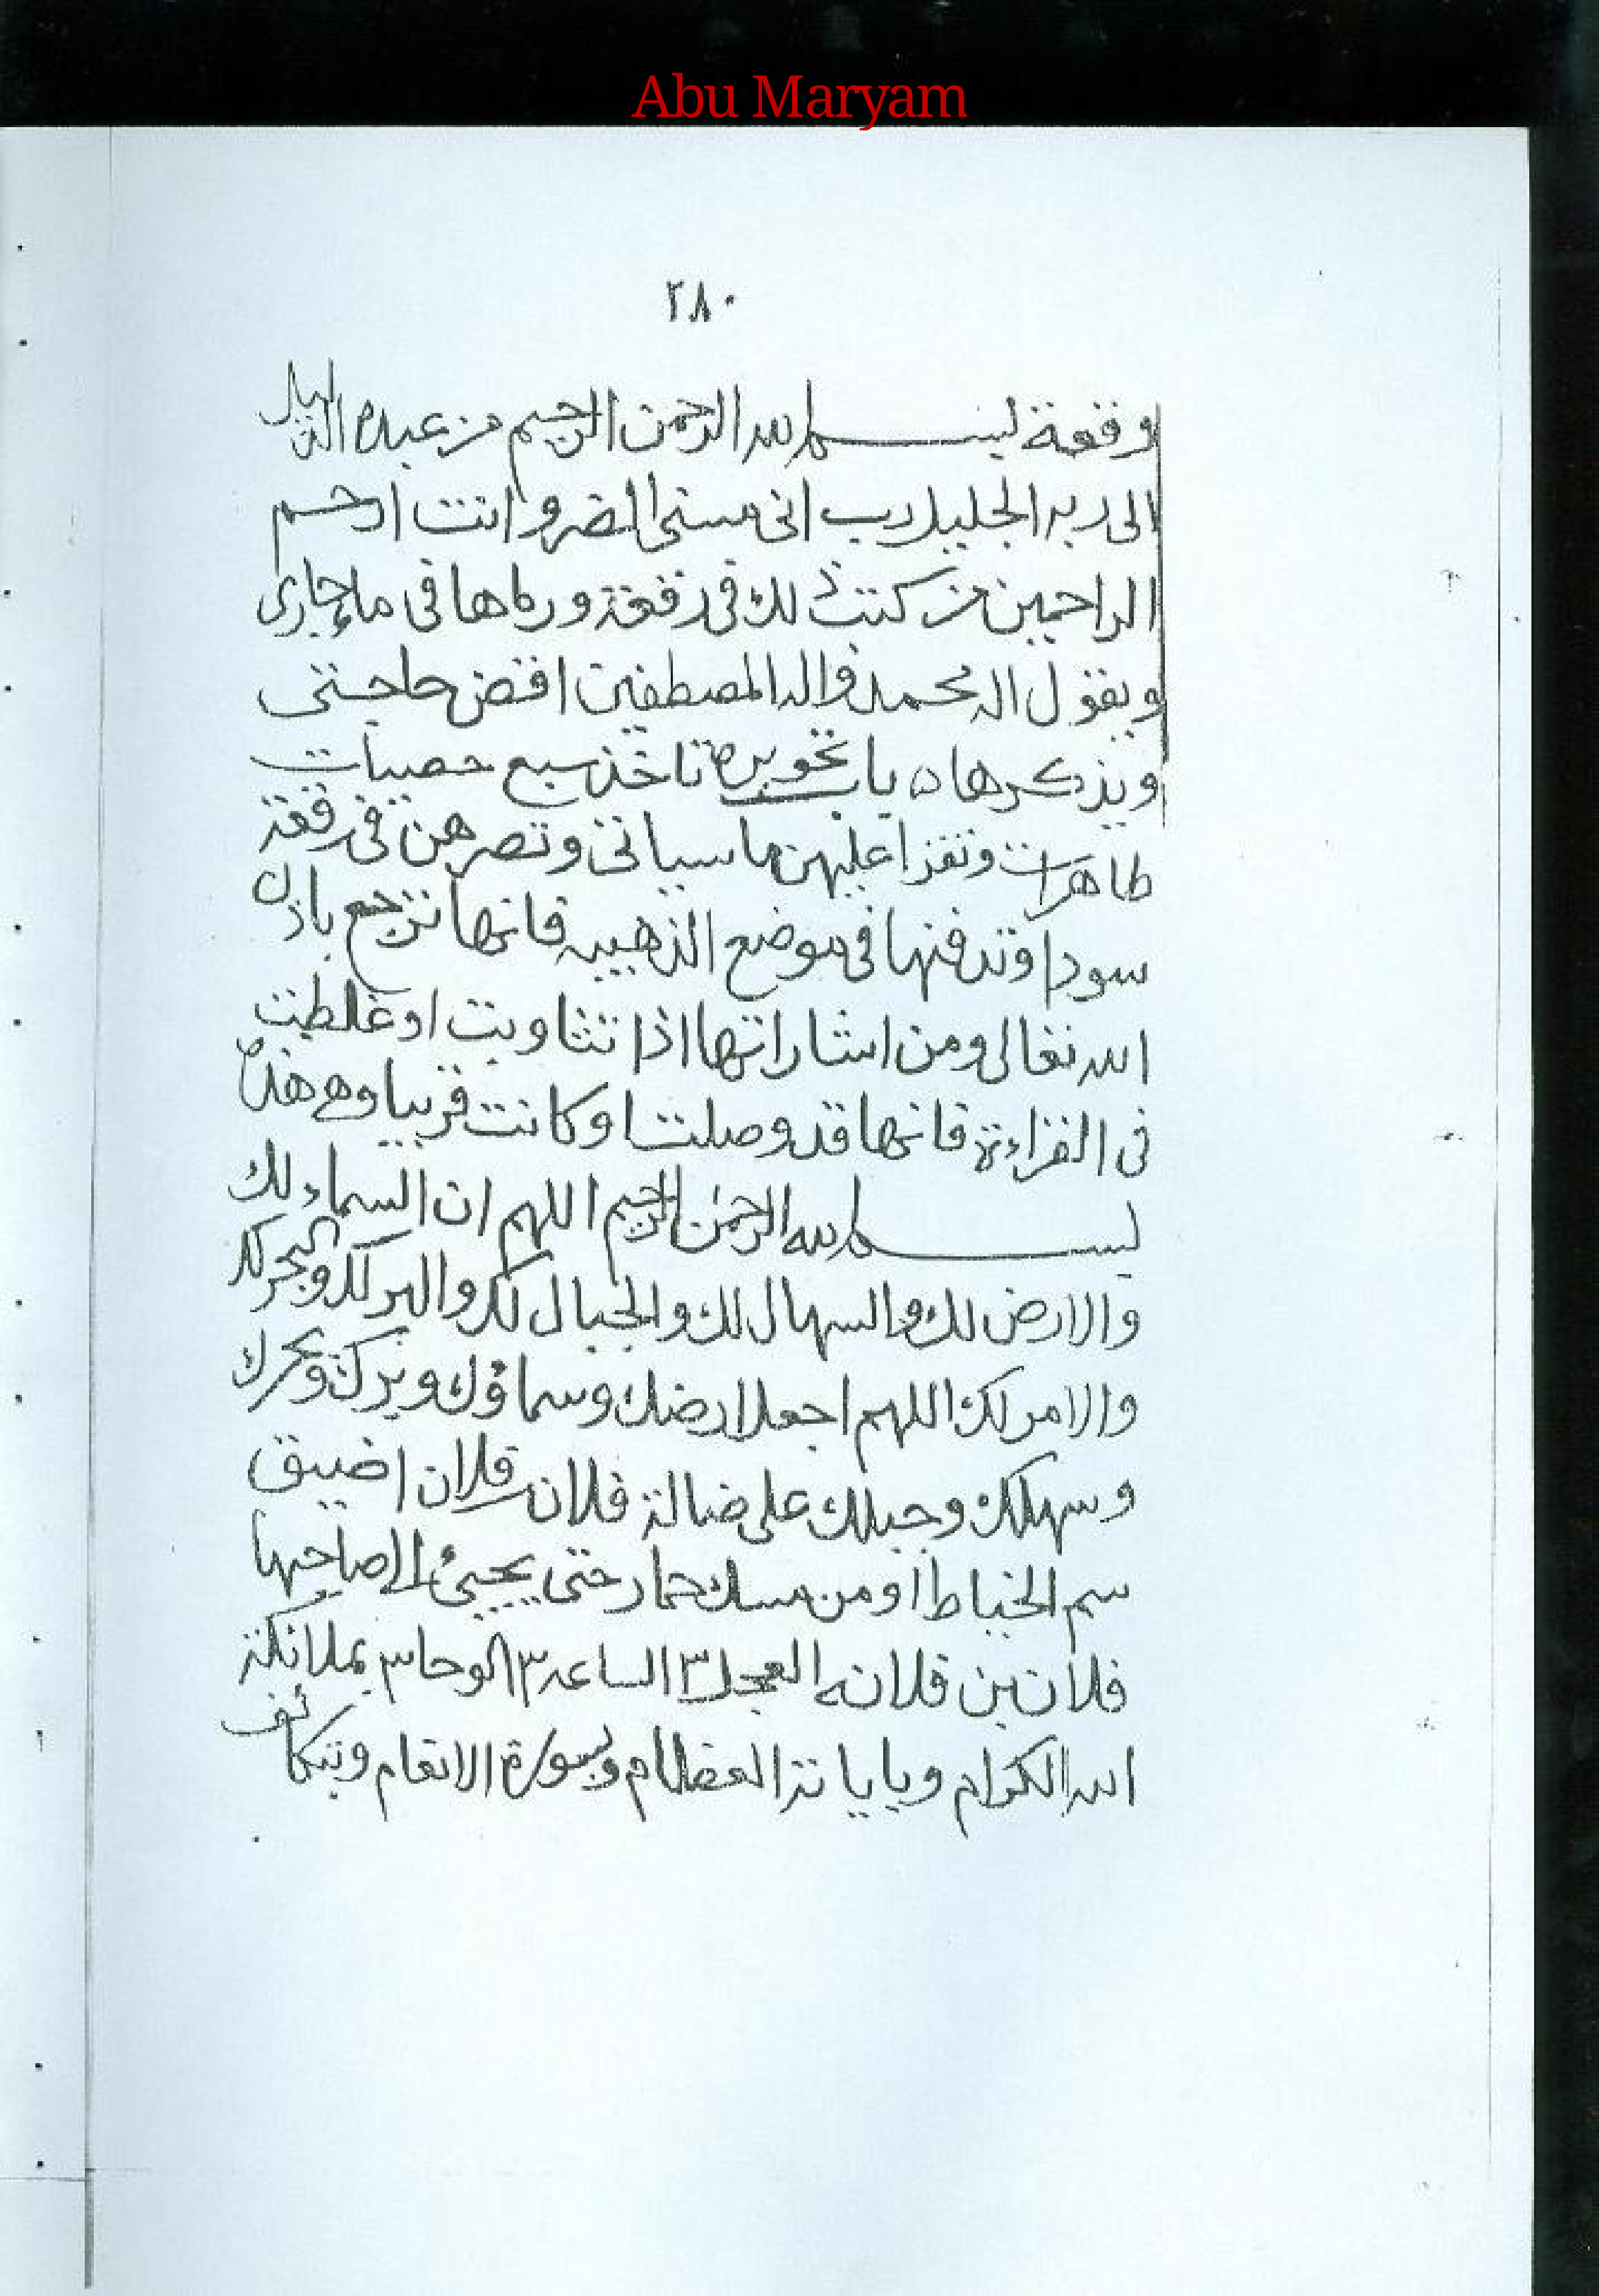 Abu Maryam
٢٨٠
بسم الله الرحمن الرحيم من عبده الذليل
الى ربه الجليل رب انى مسنى الضر وانت ارحم
الراحمين من كتبت لك فى رقعة ورماها فى ماء جارى
ويقول اله محمد واله المصطفين اقض حاجتى
ويذكرها ه باب تاخذ سبع حصيات
طاهرات وتقرا عليهن ما سياتى وتصرهن فى رقعة
سودا وتدفنها فى موضع فانها ترجع باذن
الله تعالى ومن اشاراتها اذا تثاوبت او غلطت
فى القراءة فانها قد وصلت او كانت قريبا وهى هذه
بسم الله الرحمن الرحيم اللهم ان السماء لك
والارض لك والسهال لك والجبال لك والبر لك والبحر لك
والامر لك اللهم اجعل ارضك وسماؤك وبرك وبحرك
وسهلك وجبلك على ضالة فلان فلان اضيق
سم الخياط او من مسك حمار حتى يجيئ الى صاحبها
فلان بن فلانه العجل ٣ الساعه ٣ الوحا ٣ بملائكة
الله الكرام وباياته العضام وبسورة الانعام